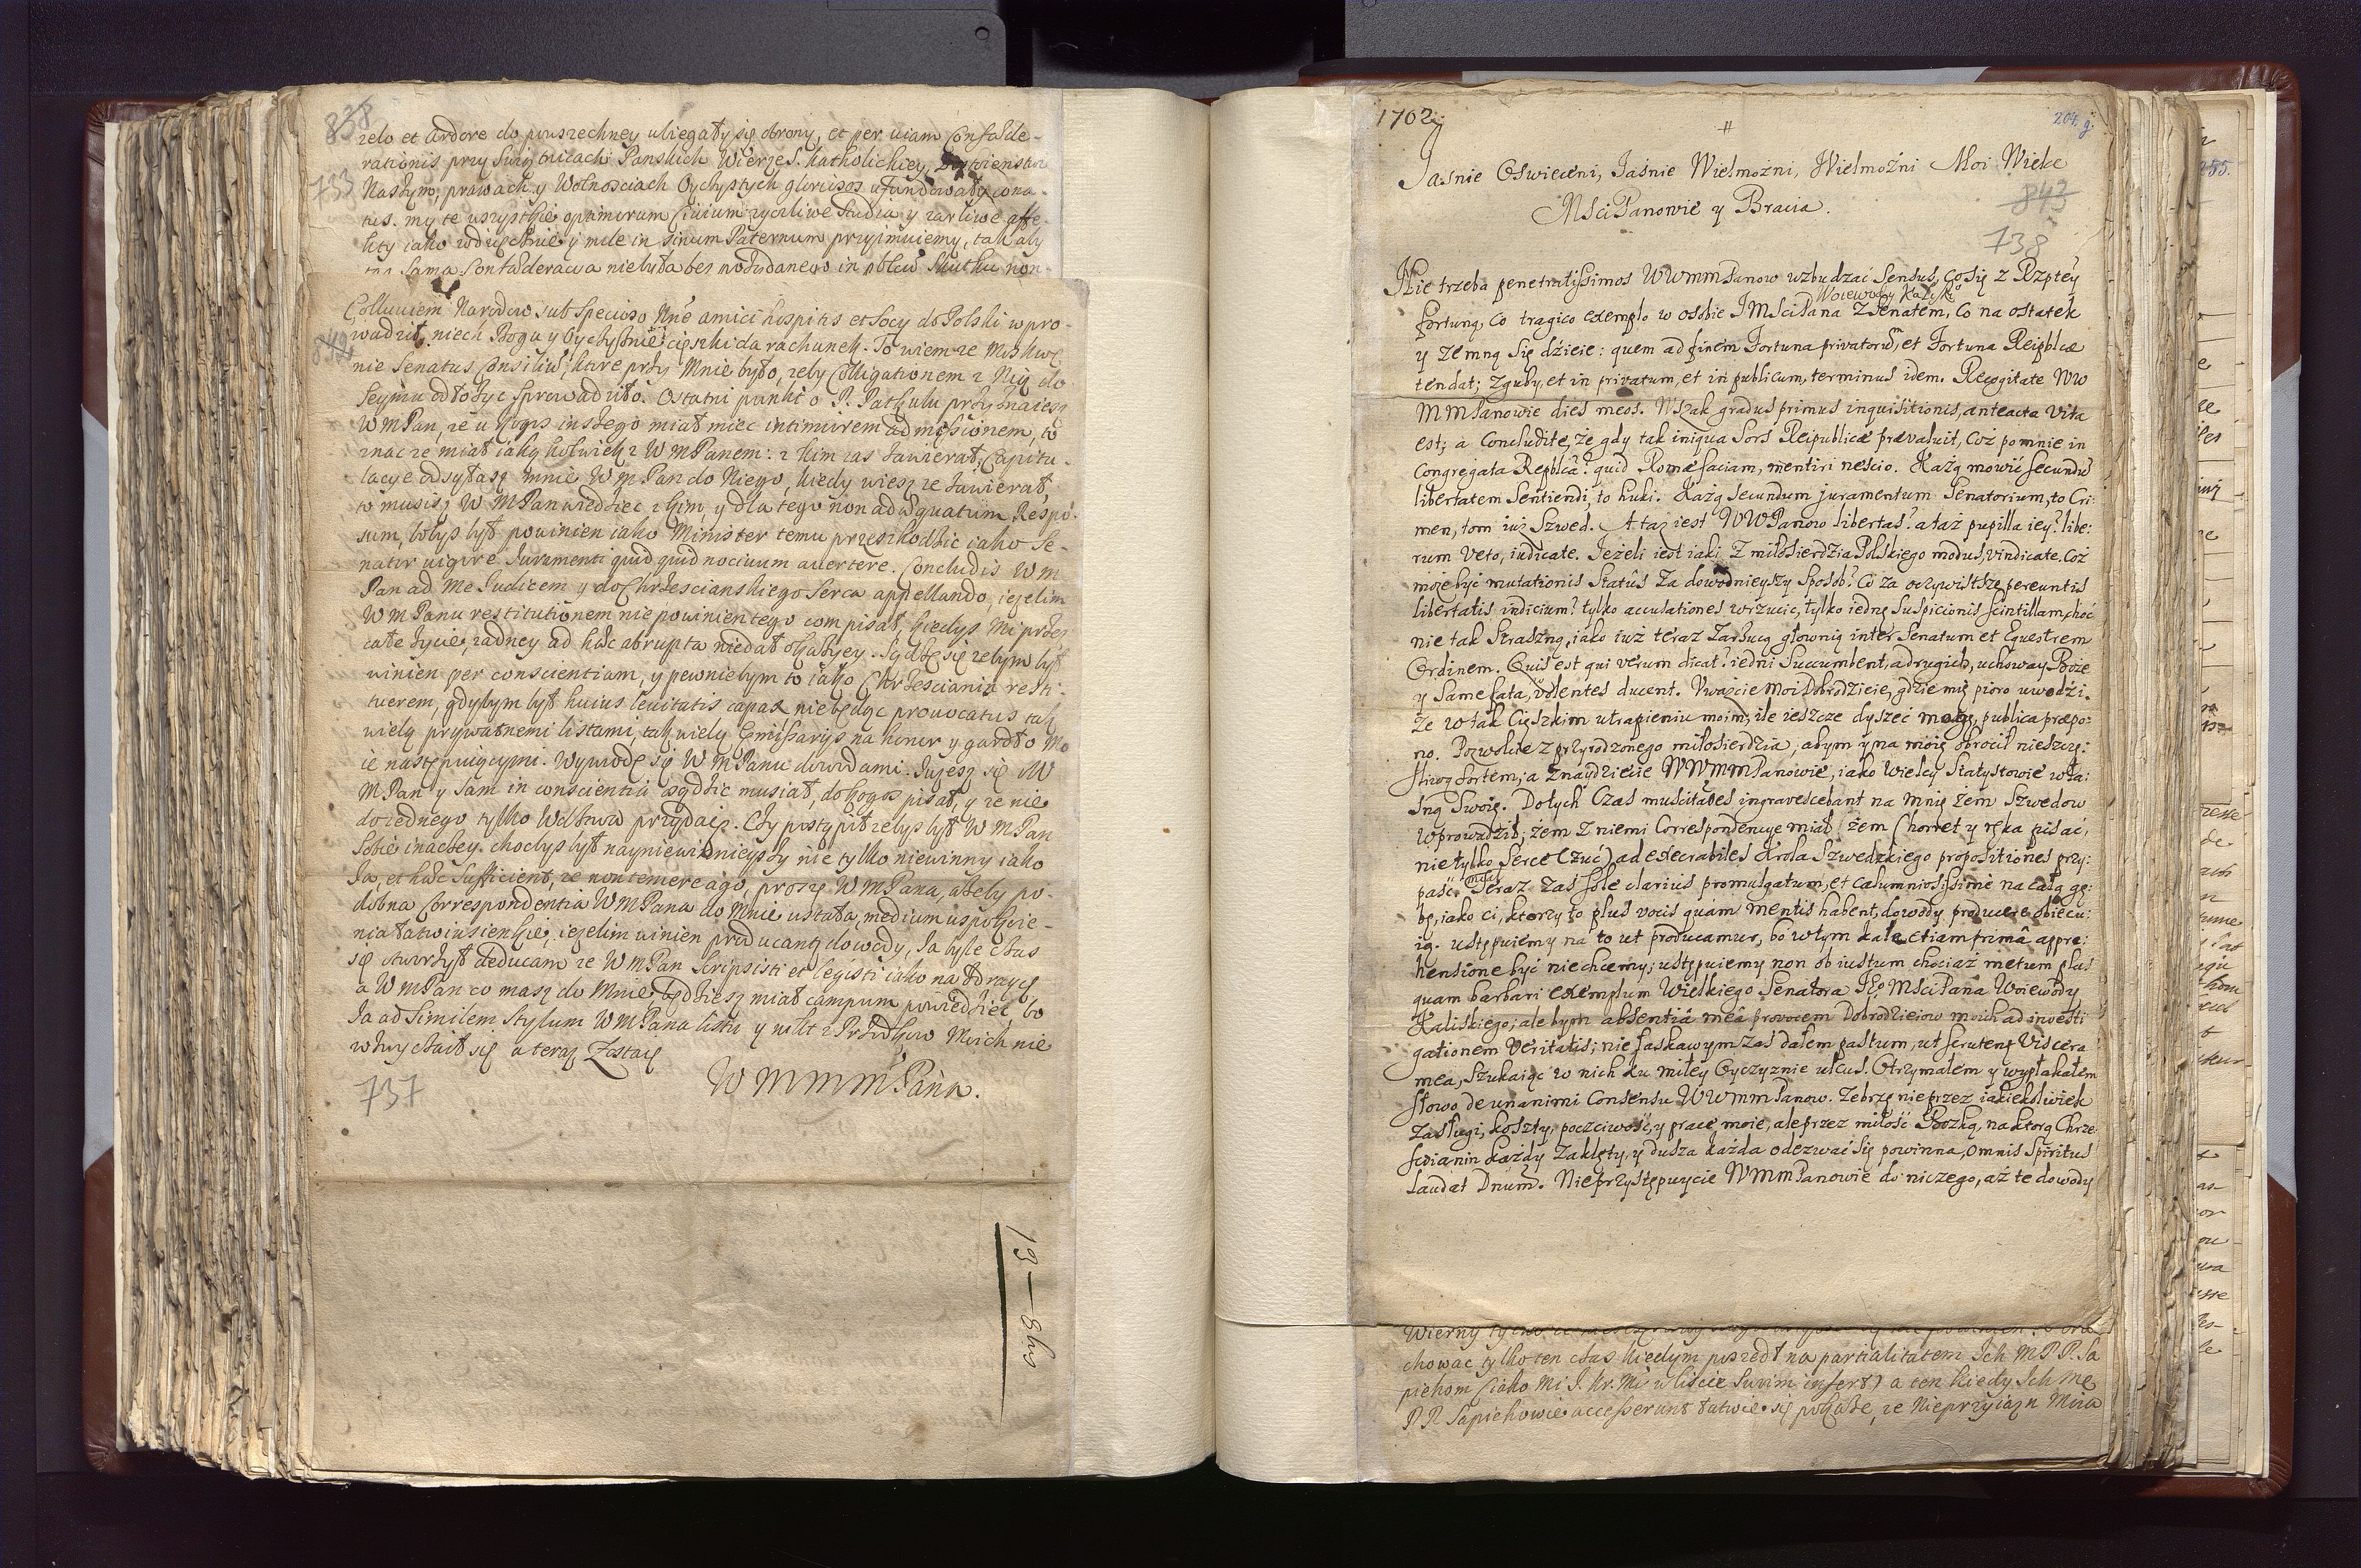 838
zelo et ardore do powszechney ubiegały się obrony, et per viam Confæde-
rationis przy Swiątnicach Panskich Wierze S. Katholickiey,
733
Naszym, prawach y Wolnosciach Oyczystych gloriosos ufundowały cona-
tus. my te wszystkie optimorum Civium życzliwe studia y żarliwe affe-
kty iako wdzięcznie y mile in sinum Paternum przyimuiemy, tak aby
sama Confæderacya niebyła bez pożądanego in publew skutku non-
Colluviem Narodow sub specioso Nñe amici hospitis et Socy do Polski wpro-
wadził, niech Bogu y Oyczyznie cięszki da rachunek. To wiem ze Moskwę
nie Senatus Consiliũ, ktore przy Mnie było, zeby Colligationem z Nią do
Seymu odłożyc sprowadziło. Ostatni punkt o P. Patkulu przyznaiesz
WMPan, ze u kogos inszego miał miec intimiorem admissionem, to
znac ze miał iakąkolwiek z WMPanem: z kim zas zawierał, Capitu-
lacye odsyłasz mnie WMPan do Niego, kiedy wiesz ze zawierał,
to musisz WMPan wiedziec z kim, y dla tego non adæquatum Respõ-
sum, bobys był powinien iako Minister temu przeszkodzic iako Se-
nator vigore Juramenti quid quid nocivum avertere. Concludis WM
Pan ad Me Judicem y do Chrzescianskiego Serca appellando, iezelim
WMPanu restitutionem nie powinien tego com pisał, kiedys Mi przez
całe życie, zadney ad hæc abrupta niedał okazyey. Sądzę się zebym był
winien per conscientiam, y pewniebym to iako Chrzescianin resti-
tuerem, gdybym był huius levitatis capax nie będąc provocatus tak
wielą prywatnemi listami, tak wielą Emissaryis na honor y gardło Mo
ie następuiącymi. Wywodzę się WMPanu dowodami. Jużesz się W
MPan y sam in conscientia osądzic musiał, do kogos pisał, y ze nie
do iednego tylko Wdztwa przydaię. Czy postąpił zebys był WMPan
sobie inaczey. chocbys był nayniewinnieyszy nie tylko niewinny iako
Ja, et hæc sufficient, ze non temere ago, proszę WMPana, azeby po-
dobna Correspondentia WMPana do Mnie ustała, medium uspokoie-
nia łatwiusienkie, iezelim winien producantq dowody, Ja byle czas
się otworzył deducam ze WMPan scripsisti et legisti iako na zdraycę
a WMPan co masz do Mnie będziesz miał campum powiedziec, bo
Ja ad similem stylum WMPana listu y nikt z Przodkow Moich nie
wzwyczaił się a teraz Zostaię
WMMMPana.
737
19 — 8bris
1702.
204. g.
Jasnie Oswieceni, Jaśnie Wielmożni, Wielmożni Moi Wielce
MSciPanowie y Bracia.
843
738
Nie trzeba penetratissimos WWMMPanow wzbudzać Sensus, co się z Rzptey
Woiewody Kalisk:
fortuną, co tragico exemplo w osobie JMSciPana Zsenatem, co na ostatek
y zemną się dzieie: quem ad finem Fortuna privatorũ, et Fortuna Reipblcæ
tendat; zguby, et in privatum, et in publicum, terminus idem. Recogitate WW
MMPanowie dies meos. Wszak gradus primus inquisitionis, anteacta vita
est; a Concludite, że gdy tak iniqua Sors Reipublicæ prævaluit, coż po mnie in
Congregata Repblcâ? quid Romæ faciam, mentiri nescio. Każą mowić secundũ
libertatem Sentiendi, to huki. Każą secundum juramentum Senatorium, to Cri:
men, tom iuż Szwed. A taż iest WWPanow libertas? a taż pupilla iey? libe:
rum Veto, iudicate. Jeżeli iest iaki z miłosierdzia Polskiego modus, vindicate. Coż
może być mutationis Statûs za dowodnieyszy sposob? Co za oczywistsze pereuntis
libertatis indicium? tylko accusationes wrzucic, tylko iedną suspicionis scintillam, choć
nie tak straszną, iako iuż teraz zarzucą głownią inter Senatum et Equestrem
Ordinem. Quis est qui verum dicat? iedni succumbent, a drugich, uchoway Boże
y same fata, volentes ducent. Uważcie Moi Dobrodzieie, gdzie mię pioro uwodzi.
Że w tak Ciężkim utrapieniu moim, ile ieszcze dyszeć mogę, publica præpo:
no. Pozwolcie z przyrodzonego miłosierdzia, abym y na moię obrocił nieszczę:
śliwą Sortem; a znaydziecie WWMMPanowie, iako Wielcy Statystowie wła:
sną Swoię. Dotych Czas muscitates ingravescebant na mnię żem Szwedow
wprowadził; żem z niemi Correspondencye miał żem (horret y ręka pisać,
nie tylko Serce czuć) ad execrabiles Krola Szwedzkiego propositiones przy:
paść. miał Teraz zaś sole clarius promulgatum, et calumniosissime na całą gę:
bę, iako ci, ktorzy to plus vocis quàm mentis habent, dowody producere obiecu:
ią. ustępuiemy na to ut producamur, bo w tym kale etiam primâ appre:
hensione być niechcemy; ustępuiemy non ob iustum chociaż metum plus
quam barbari exemplum Wielkiego Senatora JEo MSciPana Woiewody
Kaliskiego; ale bym absentiâ meâ provocem Dobrodzieiow moich ad investi
gationem Veritatis; niełaskawym zaś dałem pastum, ut scrutent Viscera
mea, szukaiąc w nich ku miłey Oyczyznie ulcus. Otrzymałem y wypłakałem
słowo de unanimi Consensu WWMMPanow. Zebrzę nie przez iakiekolwiek
zasługi, koszty, poczciwość, y prace moie, ale przez miłość Bozką, na ktorą Chrze
scianin każdy zaklęty, y dusza każda odezwać się powinna, omnis Spiritus
Laudat Dnum. Nieprzystępuycie WMMPanowie do niczego, aż te dowody
chowac tylko ten czas kiedym poszedł na partialitatem Ich MPP. Sa
piehom (iako Mi J. Kr. Mć w liście swoim inserit) a ten kiedy Ich Mę
PP. Sapiehowie accesserunt łatwie się pokaże, ze Nieprzyiazn Moia